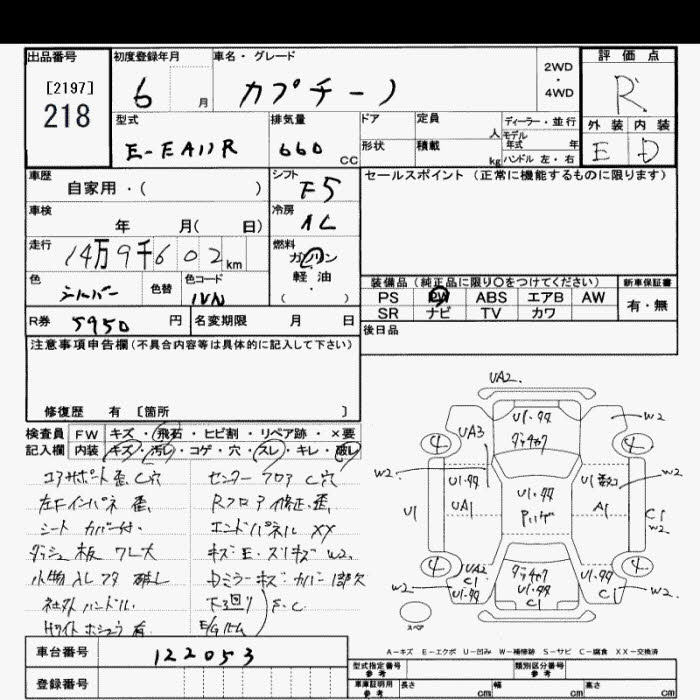 出品番号
[2197]
218
初度登録年月
6 月
車名・グレード
カプチーノ
2WD
・
4WD
評価点
R
外装 内装
E D
型式
E-EA11R
排気量
660 CC
ドア
形状
定員 人
積載 kg
ディーラー・並行
モデル
年式 年
ハンドル 左・右
車歴
自家用・( )
シフト
F5
セールスポイント (正常に機能するものに限ります)
車検
年 月( 日)
冷房
AC
走行
14万9千602km
燃料
ガソリン
・
軽油
( )
色
シルバー
色替
色コード
装備品 (純正品に限り○をつけてください)
新車保証書
PS PW ABS エアB AW
SR ナビ TV カワ
有・無
R券 5950 円
名変期限 月 日
後日品
注意事項申告欄(不具合内容等は具体的に記入して下さい)
修復歴 有 [箇所 ]
検査員
記入欄
FW キズ・飛石・ヒビ割・リペア跡・×要
内装 キズ・汚レ・コゲ・穴・スレ・キレ・破レ
エアサポート歪C穴
センターフロアC穴
左Fインパネ歪
Rフロア修正、歪
シートカバー付
エンドパネルXX
ダッシュ板ワレ大
キズE・スリキズW2
小物入レフタ破レ
Dミラーキズカバー1部欠
社外ハンドル
下3回り
F.C
UA2
U1・タタ
W2
UA3
4
4
W2
U1・タタ
W2
U1
UA1
U1・タタ
A1
C1
W2
4
4
UA2
C1
U1・タタ
W2
U1・タタ
C1
U1・タタ
C1
W2
スペア
A-キズ E-エクボ U-凹み W-補修跡 S-サビ C-腐食 XX-交換済
車台番号
122053
登録番号
型式指定番号
参考
類別区分番号
参考
車庫証明用
参考
長さ cm
幅 cm
高さ cm